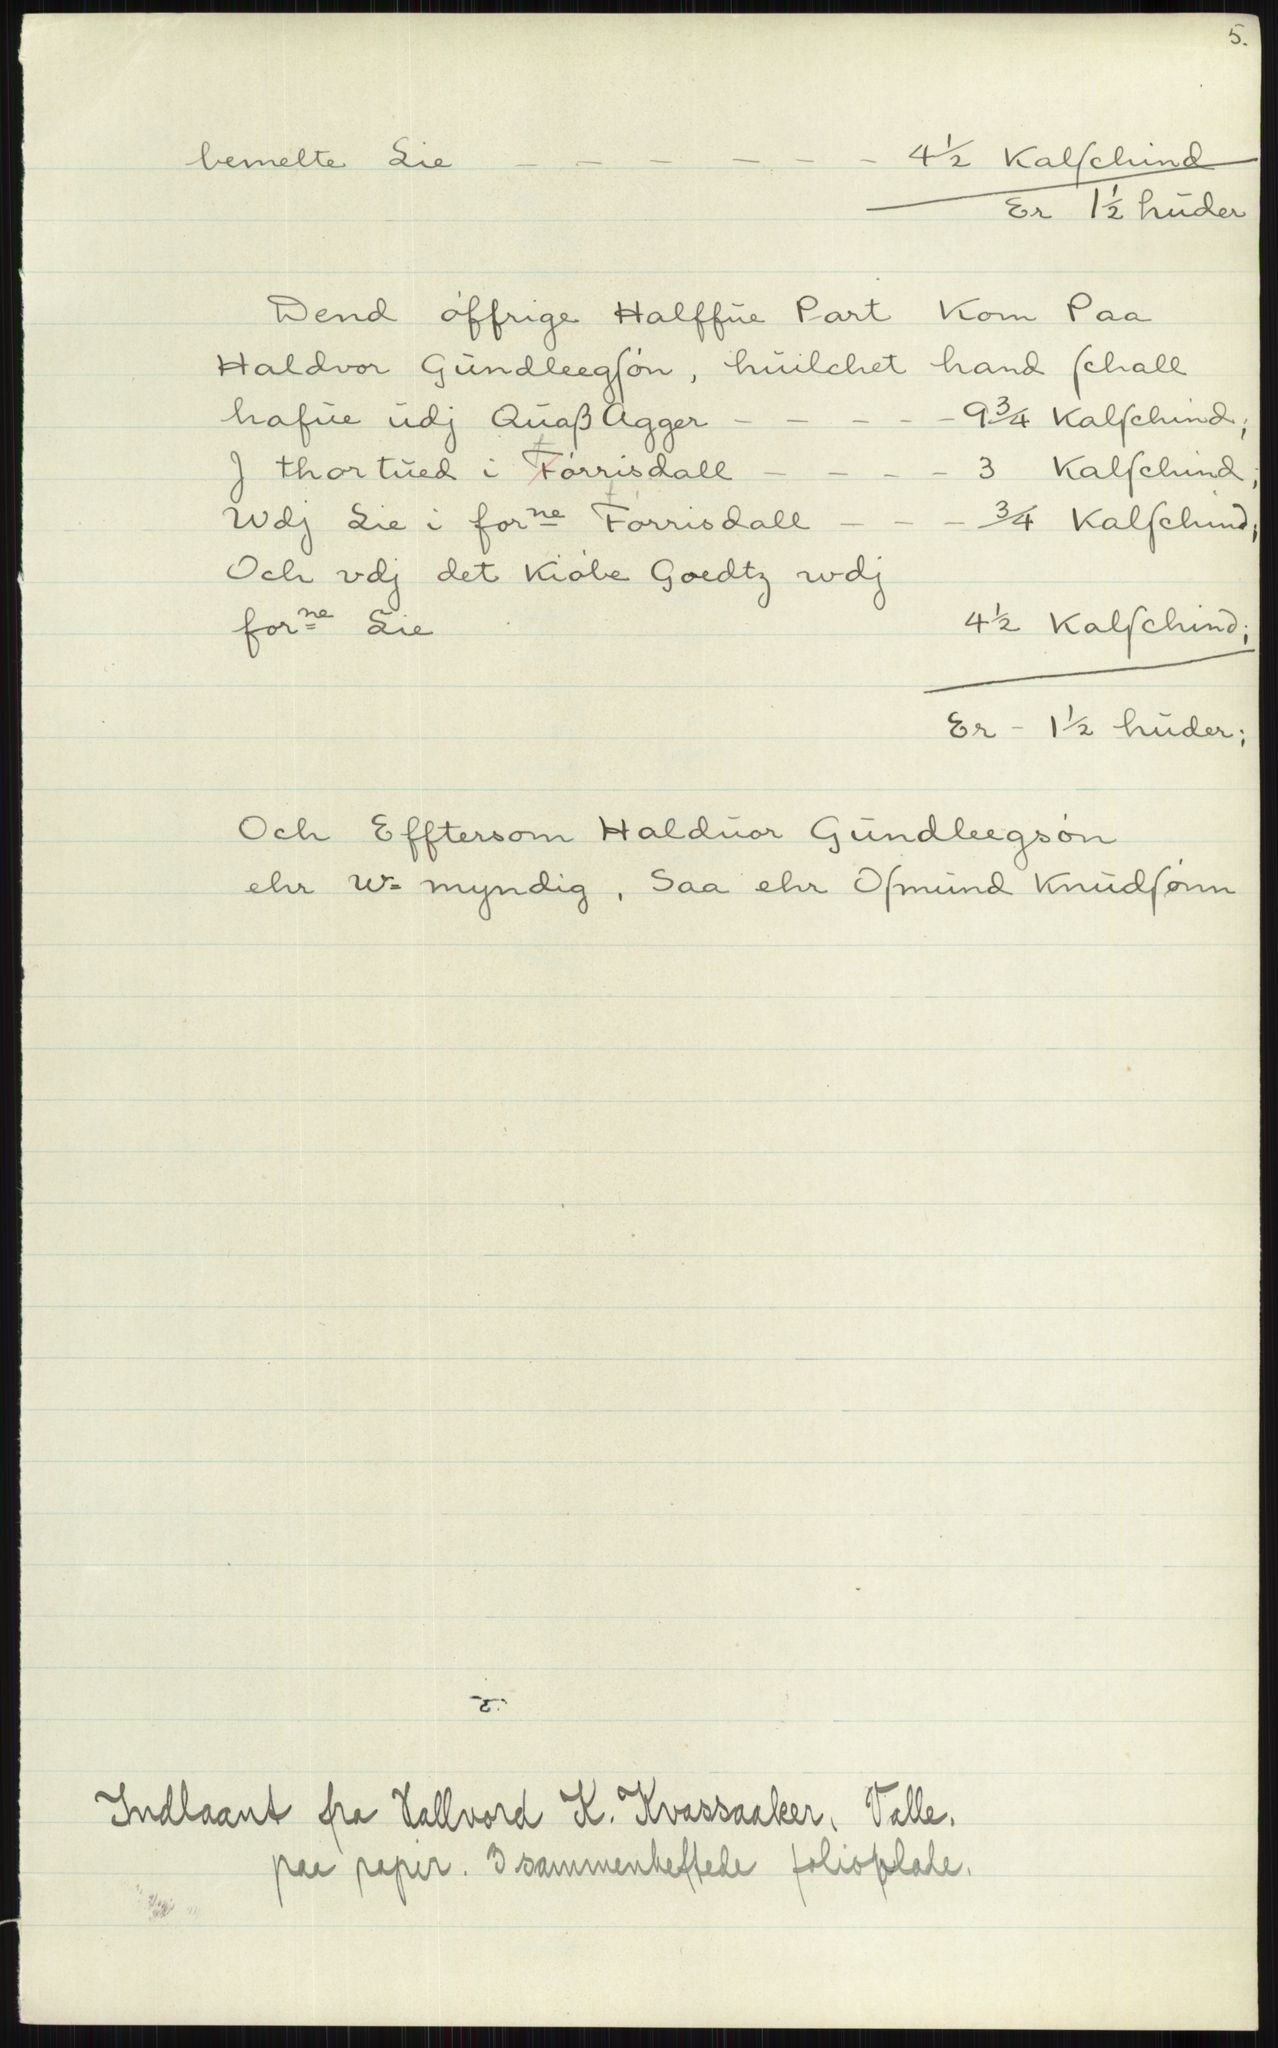 5.
bemelte Lie - - - - - - - 4½ Kalſchind
Er 1½ hŭder
Dend óffrige Halffŭe Part Kom Paa
Haldvor Gŭndleegſón, hŭilchet hand ſchall
hafŭe ŭdj Qŭaß Agger - - - - - 9¾ Kalſchind;
J thortŭed i Fórrisdall - - - - 3 Kalſchind;
Wdj Lie i forne Fórrisdall - - - ¾ Kalſchind;
Och vdj det Kióbe Goedtz wdj
forne Lie 4½ Kalſchind;
Er - 1½ hŭder;
Och Efftersom Haldŭor Gŭndleegsón
ehr W= myndig, Saa ehr Oſmŭnd Knŭdſónn
Indlaant fra Hallvord K. Kvassaaker, Valle.
paa papir. 3 sammenheftede folioblade.